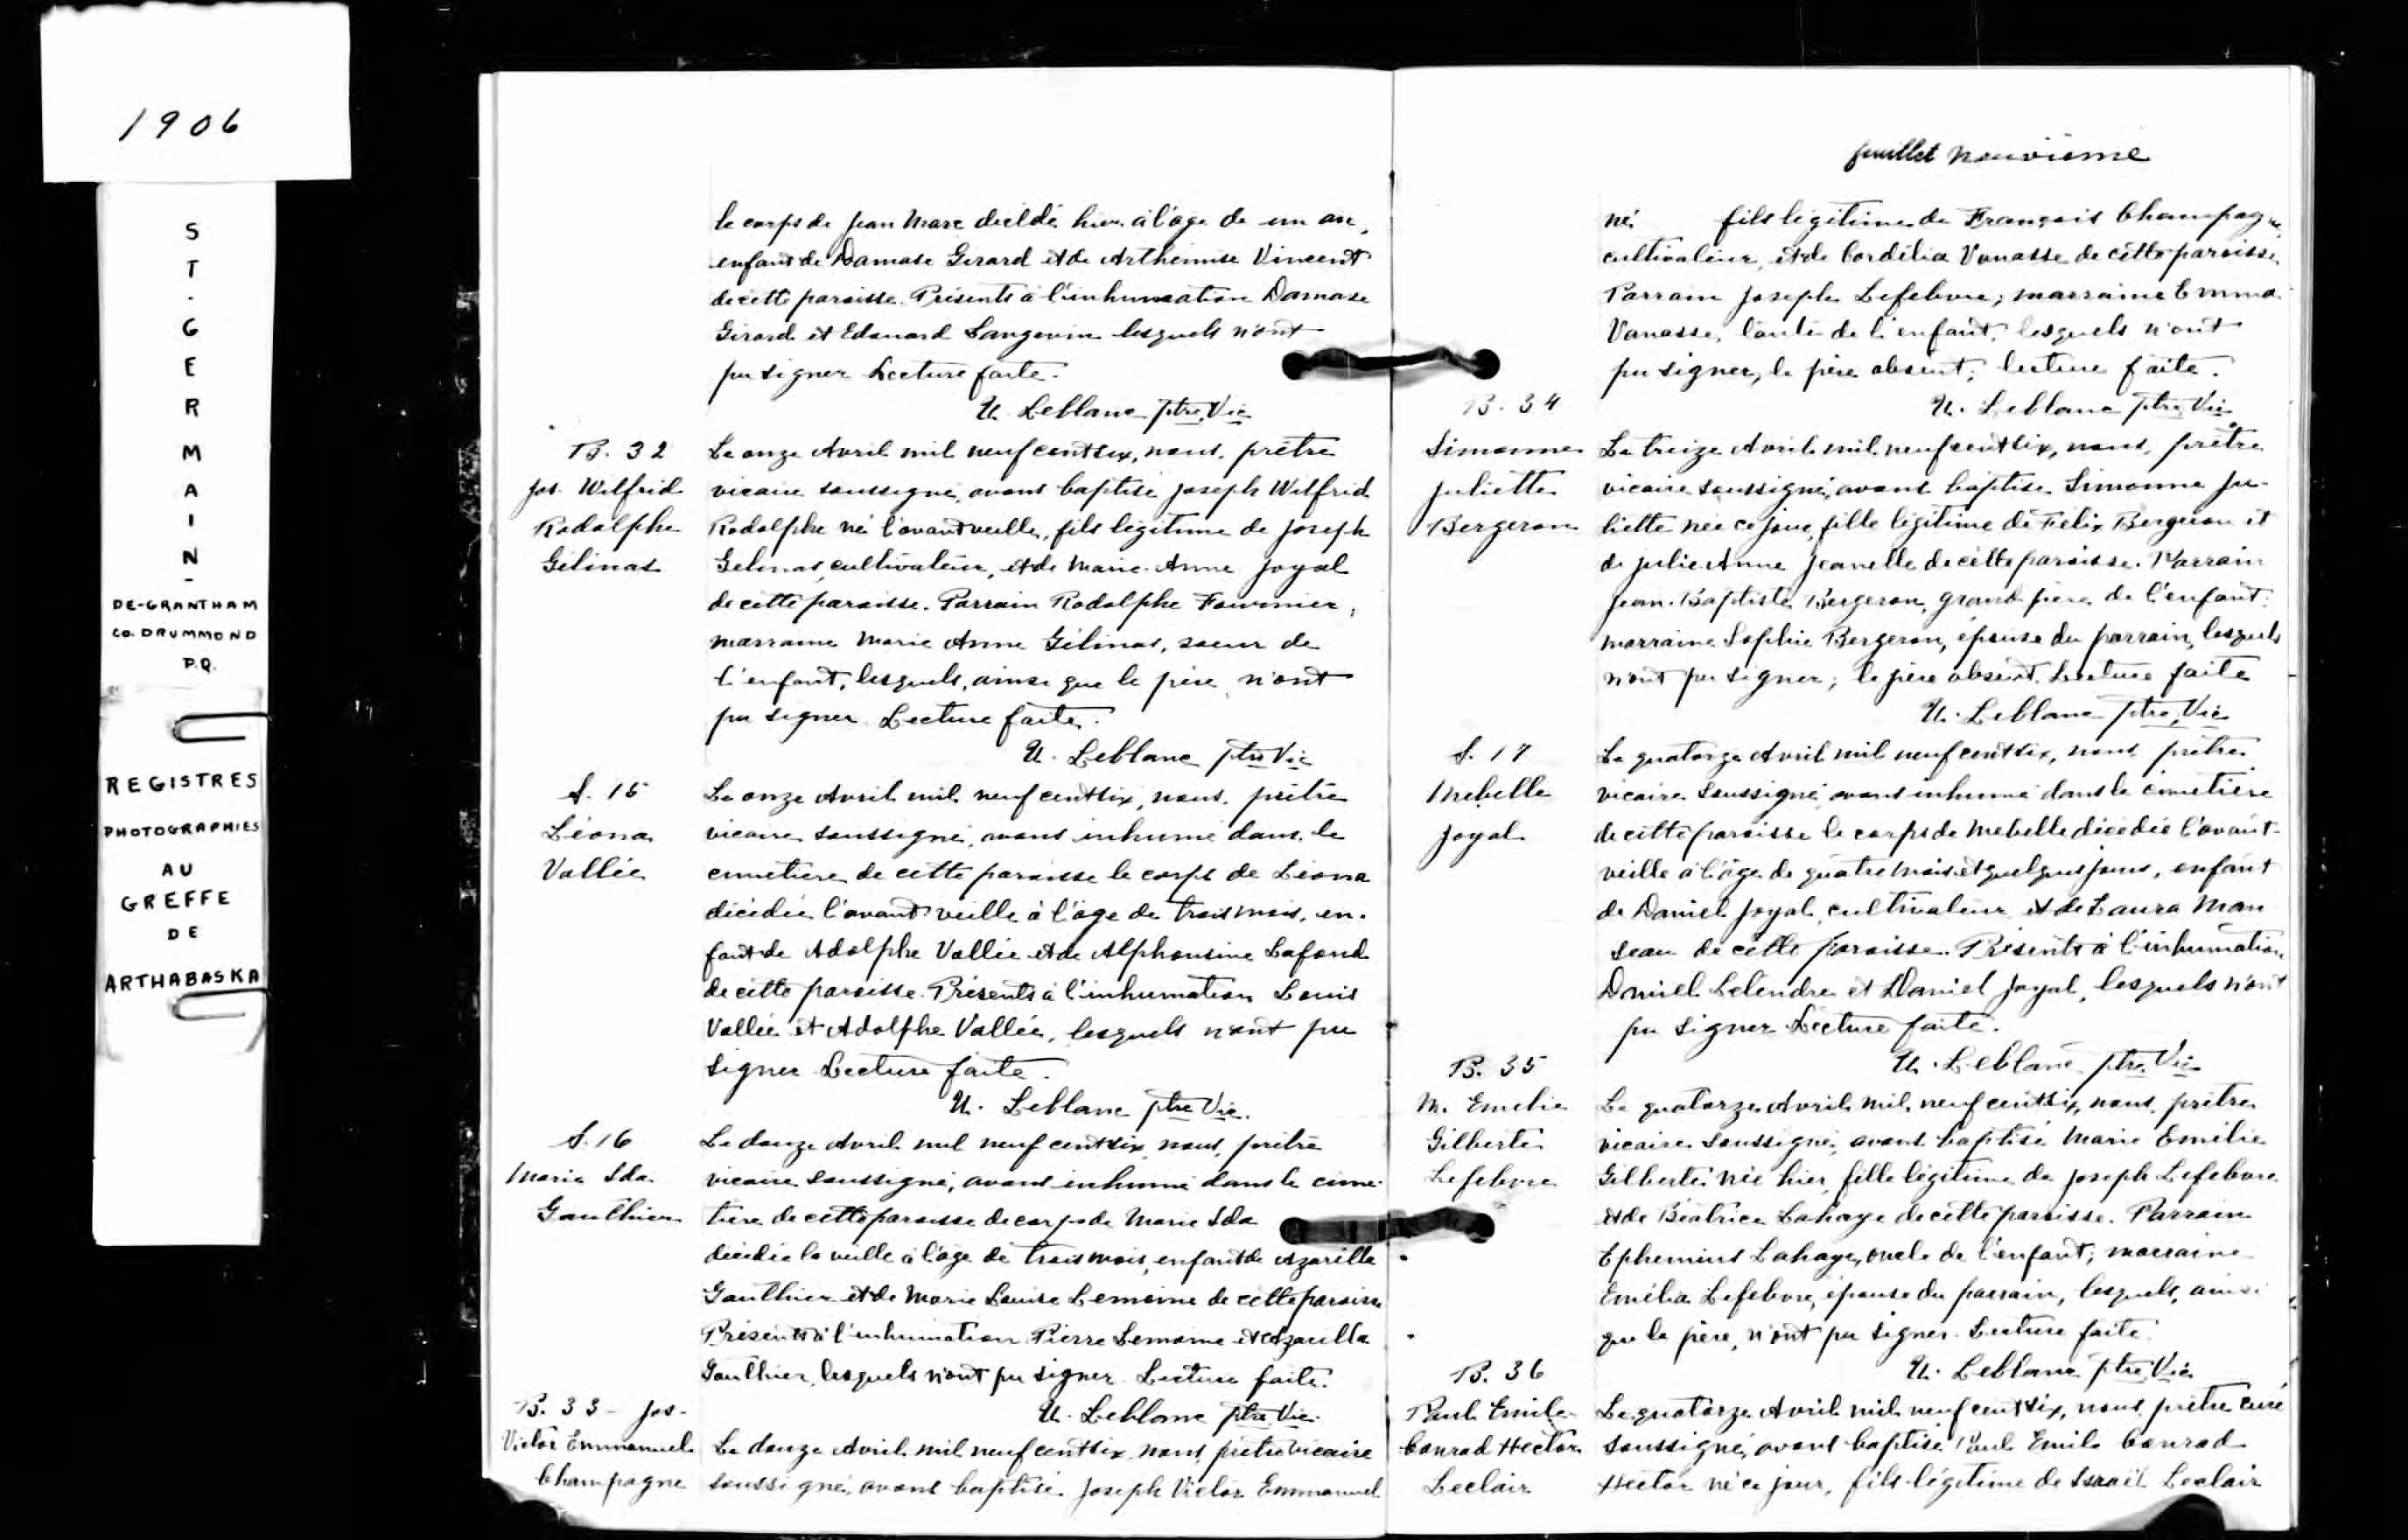 1906
ST. GERMAIN-
DE-GRANTHAM
CO. DRUMMOND
P.Q.
REGISTRES
PHOTOGRAPHIES
AU
GREFFE
DE
ARTHABASKA
le corps de Jean Marc décédé hier à l'âge de un an,
enfant de Damase Girard et de Arthemise Vincent
de cette paroisse. Présents à l'inhumation Damase
Girard et Edouard Langevin lesquels n'ont
pu signer Lecture faite.
U. Leblanc ptre Vic
B. 32
Jos. Wilfrid
Rodolphe
Gélinas
Le onze Avril mil neuf cent six, nous, prêtre
vicaire soussigné, avons baptisé Joseph Wilfrid
Rodolphe né l'avant veille, fils légitime de Joseph
Gélinas, cultivateur, et de Marie-Anne Joyal
de cette paroisse. Parrain Rodolphe Fournier,
marraine Marie Anne Gélinas, soeur de
l'enfant, lesquels, ainsi que le père, n'ont
pu signer. Lecture faite.
U. Leblanc ptre Vic
S. 15
Léona
Vallée
Le onze Avril mil neuf cent six, nous, prêtre
vicaire soussigné, avons inhumé dans le
cimetière de cette paroisse le corps de Léona
décédée l'avant veille à l'âge de trois mois, en-
fant de Adolphe Vallée et de Alphonsine Lafond
de cette paroisse. Présents à l'inhumation Louis
Vallée et Adolphe Vallée, lesquels n'ont pu
signer Lecture faite.
U. Leblanc ptre Vic.
S. 16
Marie Ida
Gauthier
Le douze Avril mil neuf cent six, nous, prêtre
vicaire soussigné, avons inhumé dans le cime-
tière de cette paroisse le corps de Marie Ida
décédée la veille à l'âge de trois mois, enfant de Azarilla
Gauthier et de Marie Louise Lemoine de cette paroisse
Présents à l'inhumation Pierre Lemoine et Azarilla
Gauthier, lesquels n'ont pu signer. Lecture faite.
U. Leblanc ptre Vic.
B. 33 - Jos-
Victor Emmanuel
Champagne
Le douze Avril mil neuf cent six, nous, prêtre vicaire
soussigné, avons baptisé Joseph Victor Emmanuel
feuillet neuvième
né fils légitime de François Champagne,
cultivateur, et de Cordélia Vanasse de cette paroisse.
Parrain Joseph Lefebvre; marraine Emma
Vanasse, tante de l'enfant, lesquels n'ont
pu signer, le père absent; lecture faite.
U. Leblanc ptre Vic
B. 34
Simonne
Juliette
Bergeron
Le treize Avril mil neuf cent six, nous, prêtre
vicaire soussigné, avons baptisé Simonne Ju-
liette née ce jour, fille légitime de Felix Bergeron et
de Julie Anne Jeanelle de cette paroisse. Parrain
Jean-Baptiste Bergeron, grand père de l'enfant:
marraine Sophie Bergeron, épouse du parrain, lesquels
n'ont pu signer; le père absent. Lecture faite
U. Leblanc ptre Vic
S. 17
Mebelle
Joyal
Le quatorze Avril mil neuf cent six, nous prêtre
vicaire soussigné avons inhumé dans le cimetière
de cette paroisse le corps de Mebelle décédée l'avant-
veille à l'âge de quatre mois et quelques jours, enfant
de Daniel Joyal, cultivateur et de Laura Man
seau de cette paroisse. Présents à l'inhumation
Daniel Letendre et Daniel Joyal, lesquels n'ont
pu signer Lecture faite.
U. Leblanc ptre Vic
B. 35
M. Emelie
Gilberte
Lefebvre
Le quatorze Avril mil neuf cent six, nous, prêtre
vicaire soussigné, avons baptisé Marie Emélie
Gilberte née hier, fille légitime de Joseph Lefebvre
et de Béatrice Lahaye de cette paroisse. Parrain
Ephemius Lahaye, oncle de l'enfant; marraine
Emélia Lefebvre, épouse du parrain, lesquels, ainsi
que le père, n'ont pu signer. Lecture faite.
U. Leblanc ptre Vic
B. 36
Paul Emile
Conrad Hector
Leclair
Le quatorze Avril mil neuf cent six, nous, prêtre curé
soussigné, avons baptisé Paul Emile Conrad
Hector né ce jour, fils légitime de Israël Leclair